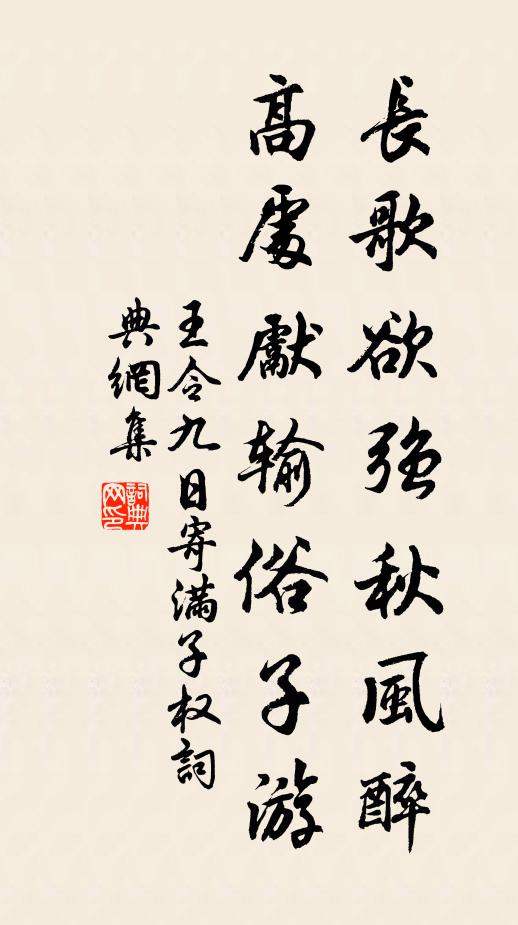 長歌欲强秋風醉
高處獻输俗子游
王令九日寄滿子权詞
典網集
詞典网印